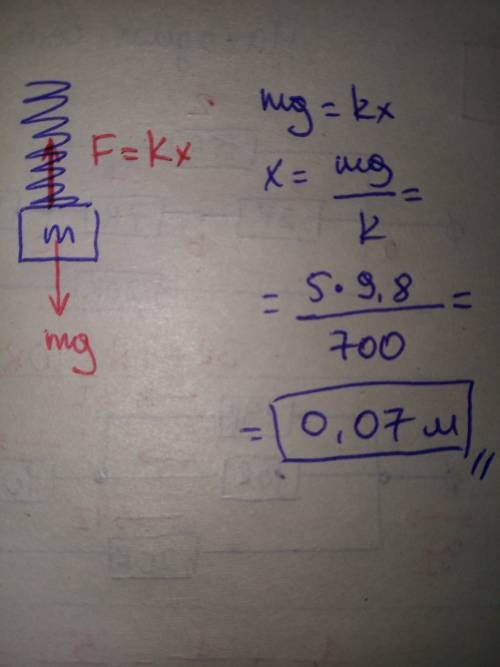 F = kx
m
mg
mg = kx
x = mg/k =
= 5·9,8/700 =
= 0,07 м